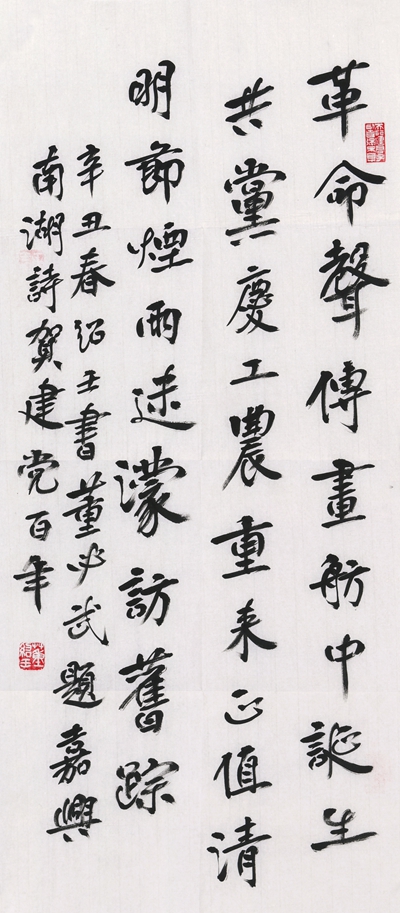 革命聲傳畫舫中誕生
共黨慶工農重来正值清
明節煙雨迷濛訪舊踪
辛丑春绍書董必武題嘉興
南湖詩賀建党百年